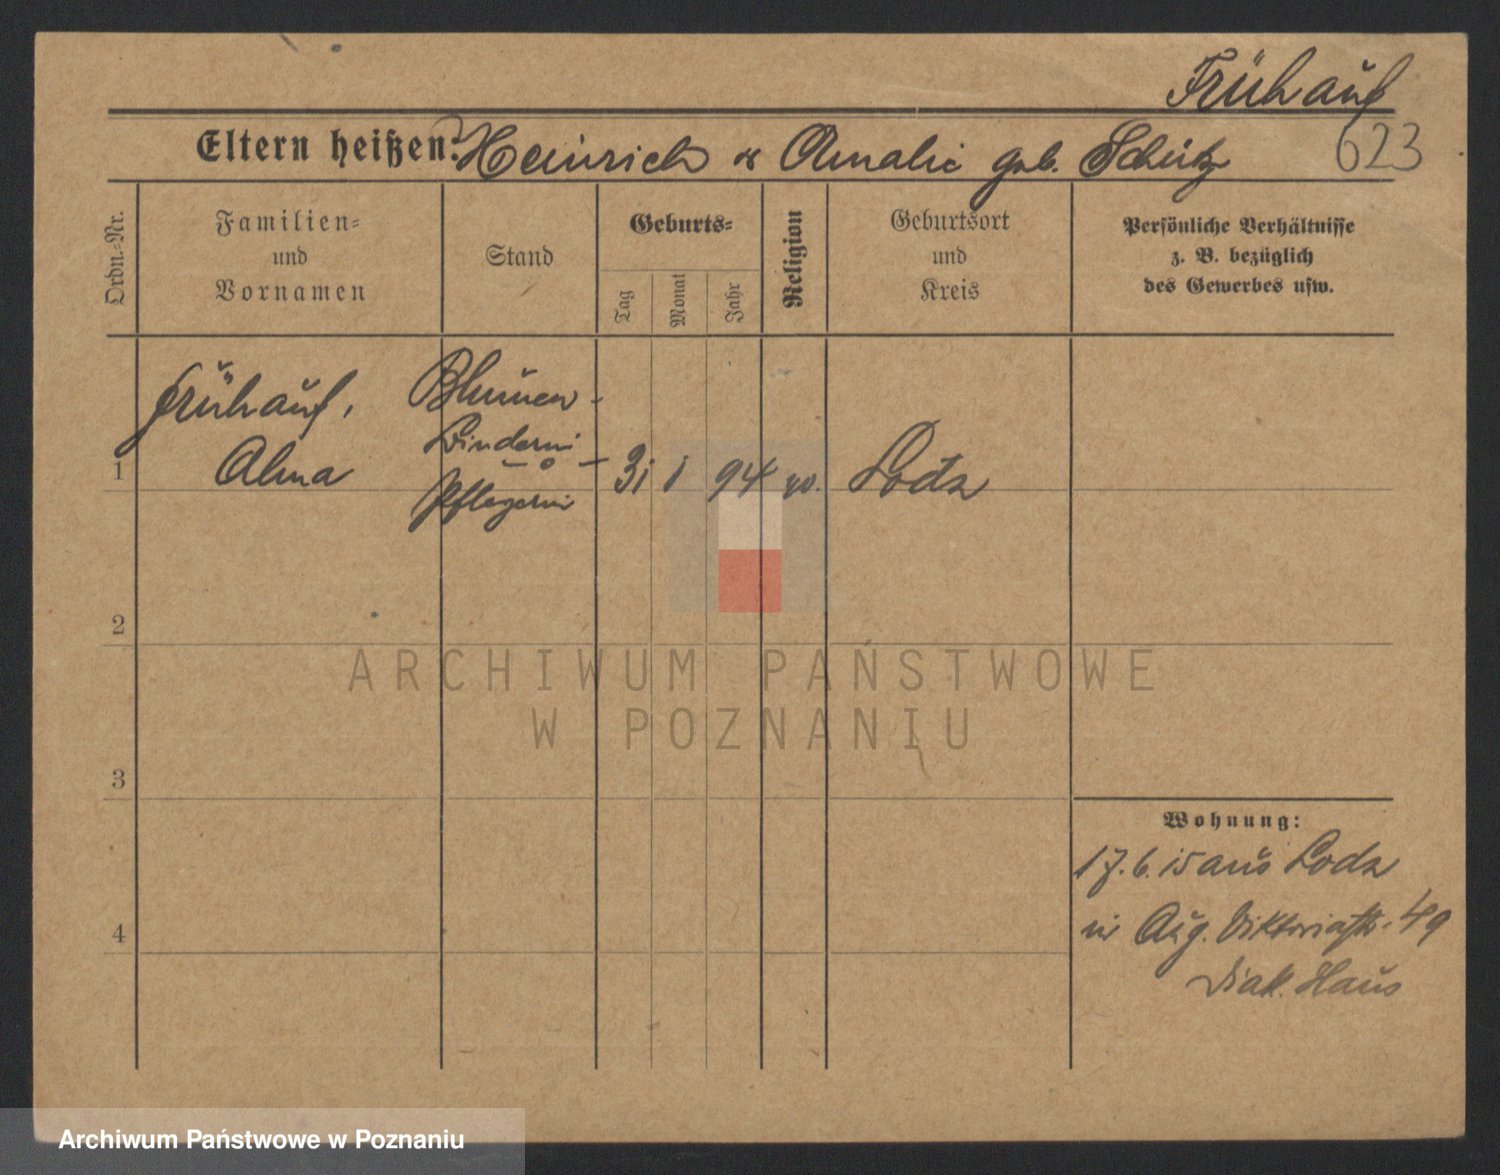 Frühauf
Eltern heißen: Heinrich & Amalie geb. Schütz
623
Ordn.-Nr.
Familien-
und
Vornamen
Stand
Geburts-
Tag
Monat
Jahr
Religion
Geburtsort
und
Kreis
Persönliche Verhältnisse
z. B. bezüglich
des Gewerbes usw.
Frühauf,
Alma
Blumen-
binderin
Pflegerin
1
31 1 94 ev. Lodz
2
3
4
Wohnung:
17.6.15 aus Lodz
in Aug. Viktoriastr. 49
Diak. Haus
ARCHIWUM PAŃSTWOWE
W POZNANIU
Archiwum Państwowe w Poznaniu